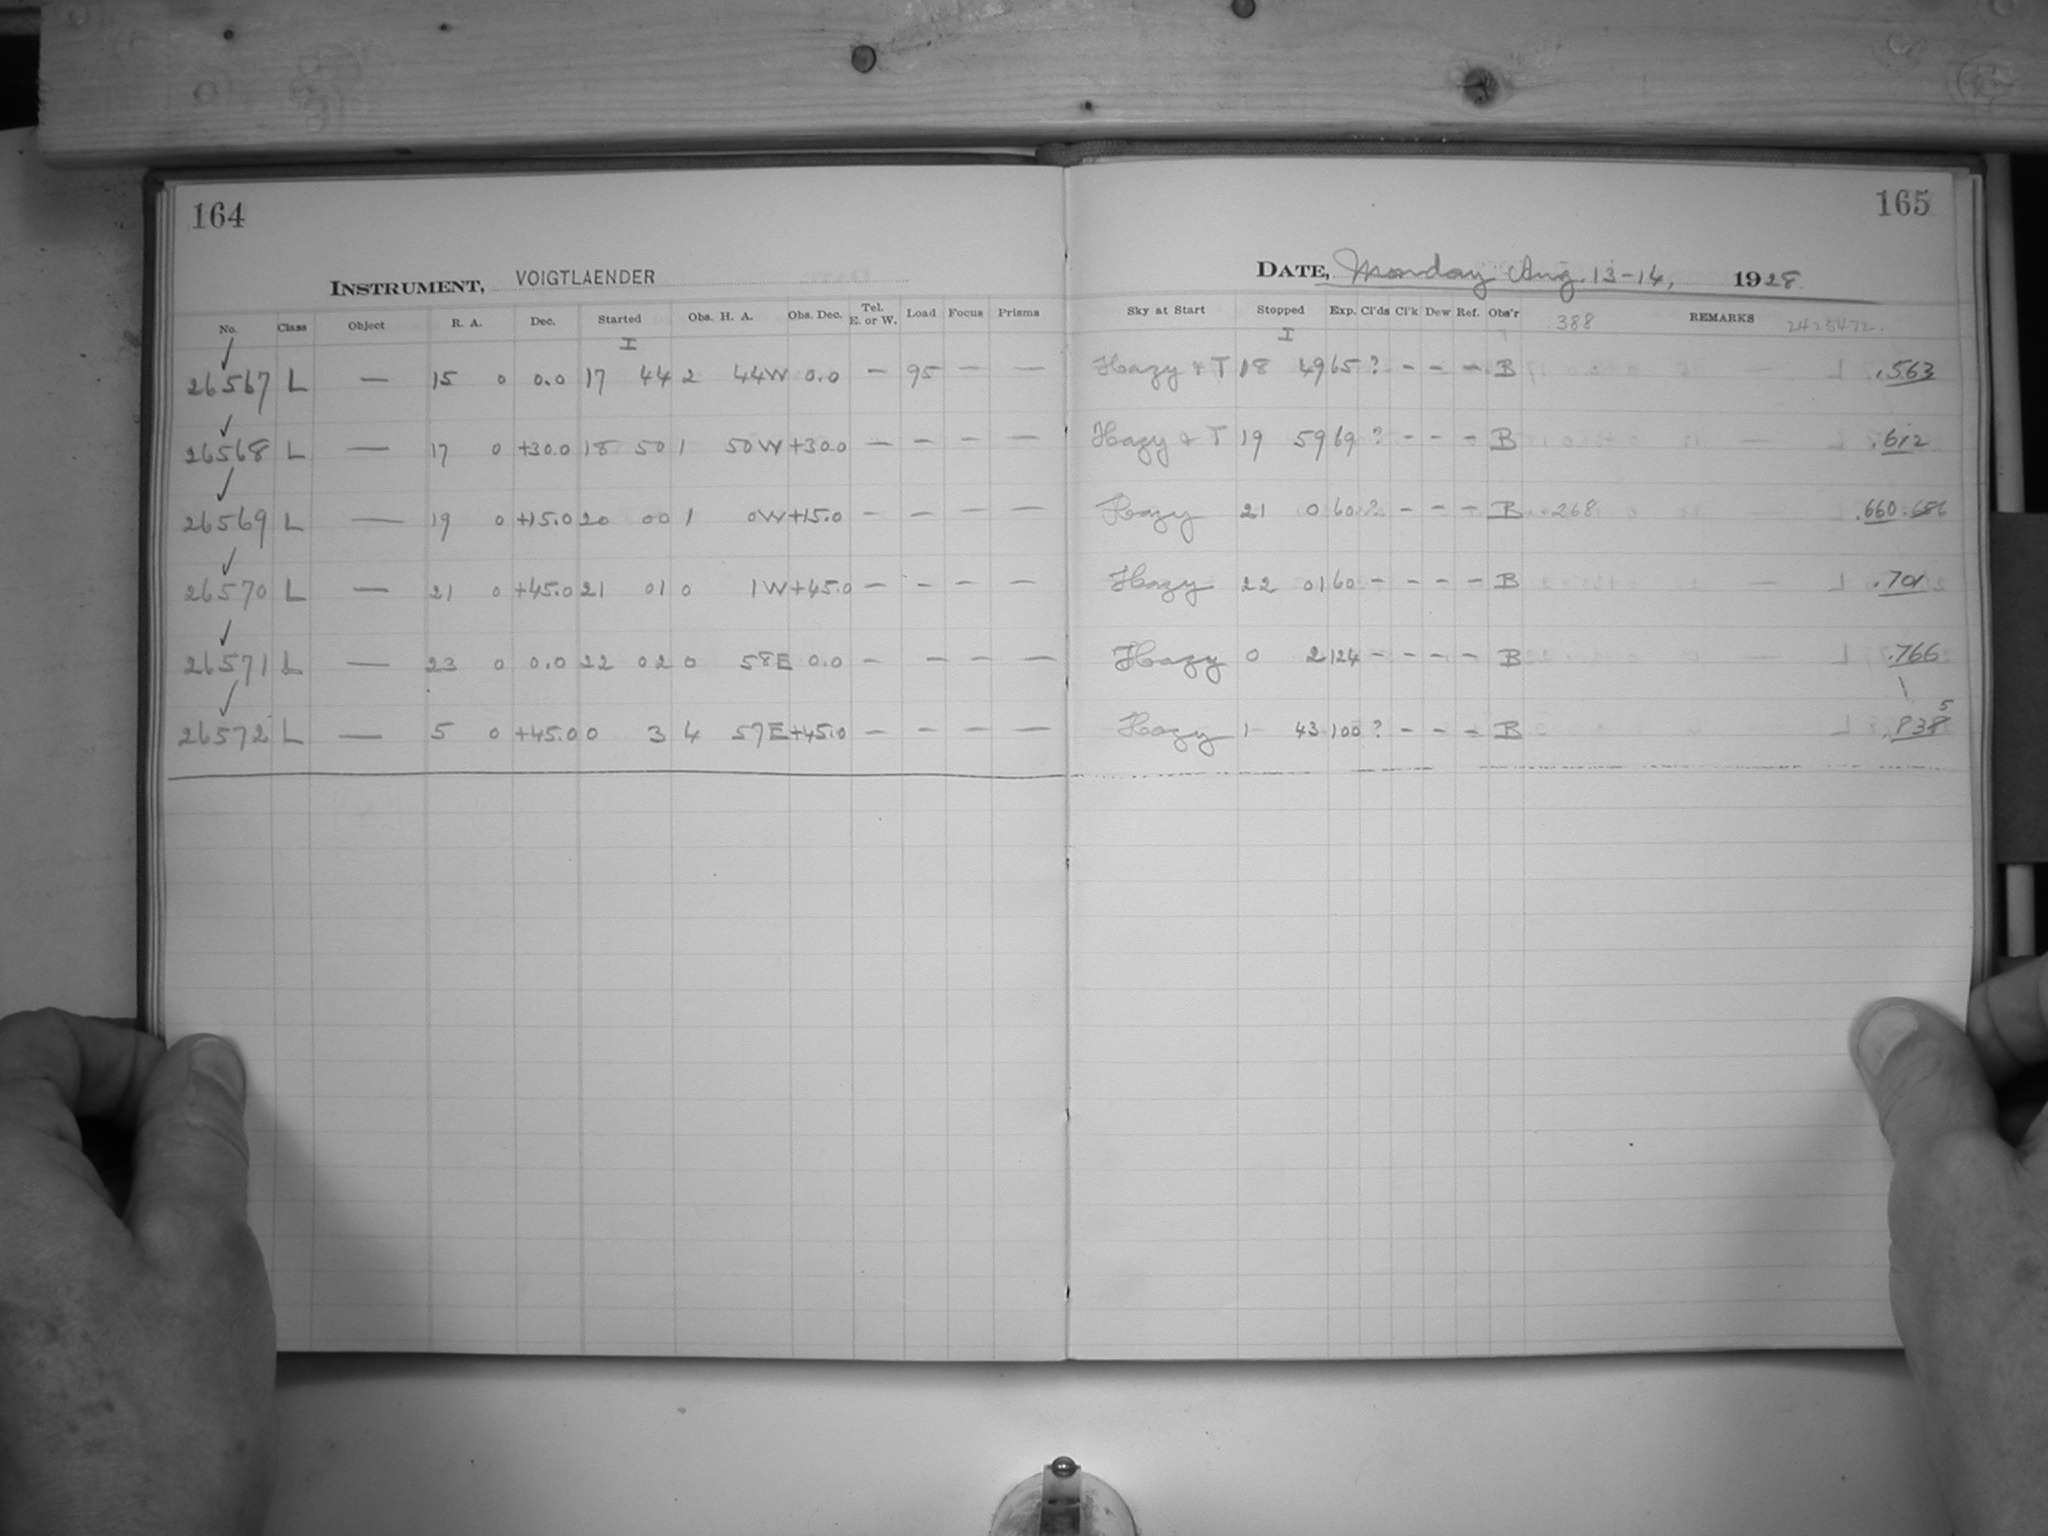 164
INSTRUMENT, VOIGTLAENDER
No. Class Object R. A. Dec. Started Obs. H. A. Obs. Dec. Tel. E. or W. Load Focus Prisms
I
✓
26567 L — 15 0 0.0 17 44 2 44W 0.0 — 95 — —
✓
26568 L — 17 0 +30.0 18 50 1 50W +30.0 — — — —
✓
26569 L — 19 0 +15.0 20 00 1 0W +15.0 — — — —
✓
26570 L — 21 0 +45.0 21 01 0 1W +45.0 — — — —
✓
26571 L — 23 0 0.0 22 02 0 58E 0.0 — — — —
✓
26572 L — 5 0 +45.0 0 3 4 57E +45.0 — — — —
165
DATE, Monday Aug. 13-14, 1928
Sky at Start Stopped Exp. Cl'ds Cl'k Dew Ref. Obs'r 388 REMARKS 2425472.
I
Hazy + T 18 49 65 ? — — — B .563
Hazy + T 19 59 69 ? — — — B .612
Hazy 21 0 60 ? — — — B .268 .660 .686
Hazy 22 01 60 — — — — B .701
Hazy 0 2 124 — — — — B .766
5
Hazy 1 43 100 ? — — — B .838